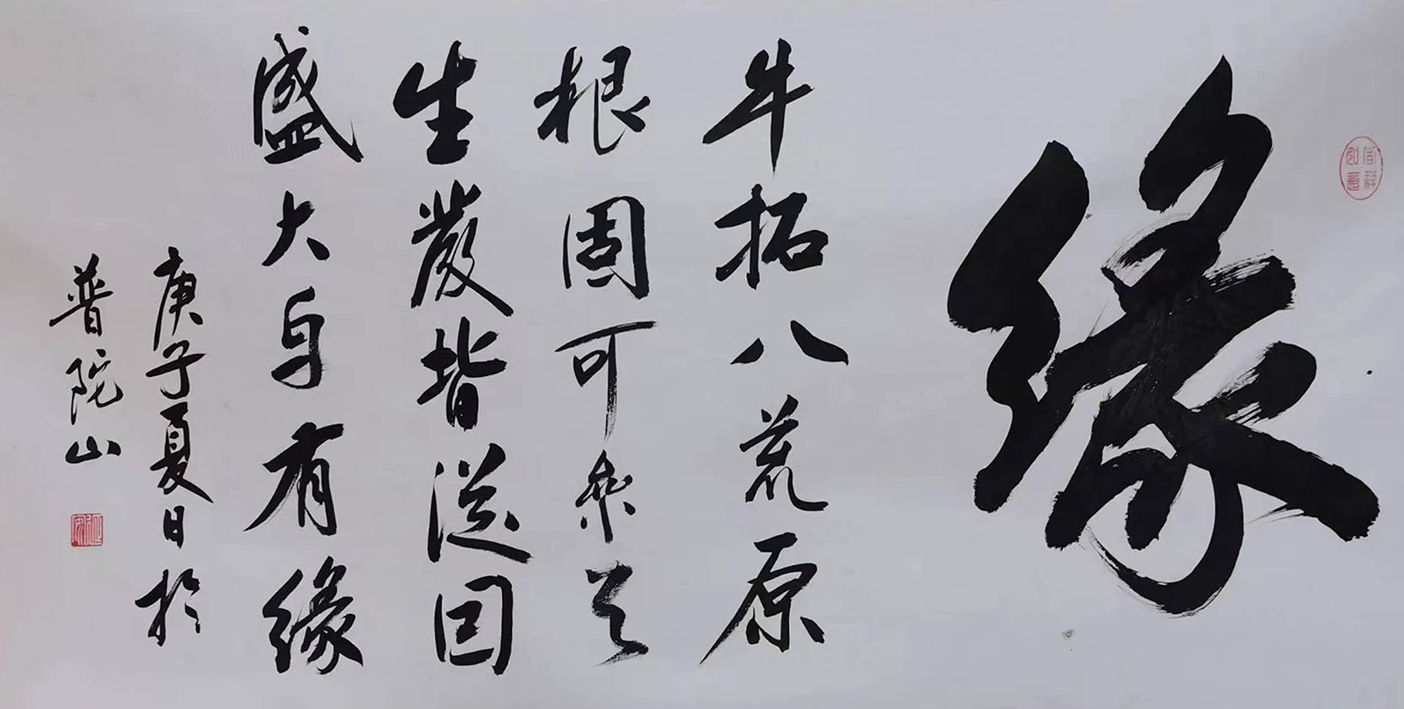 缘
牛拓八荒原
根固可参天
生发皆从因
盛大自有缘
庚子夏日於
普陀山